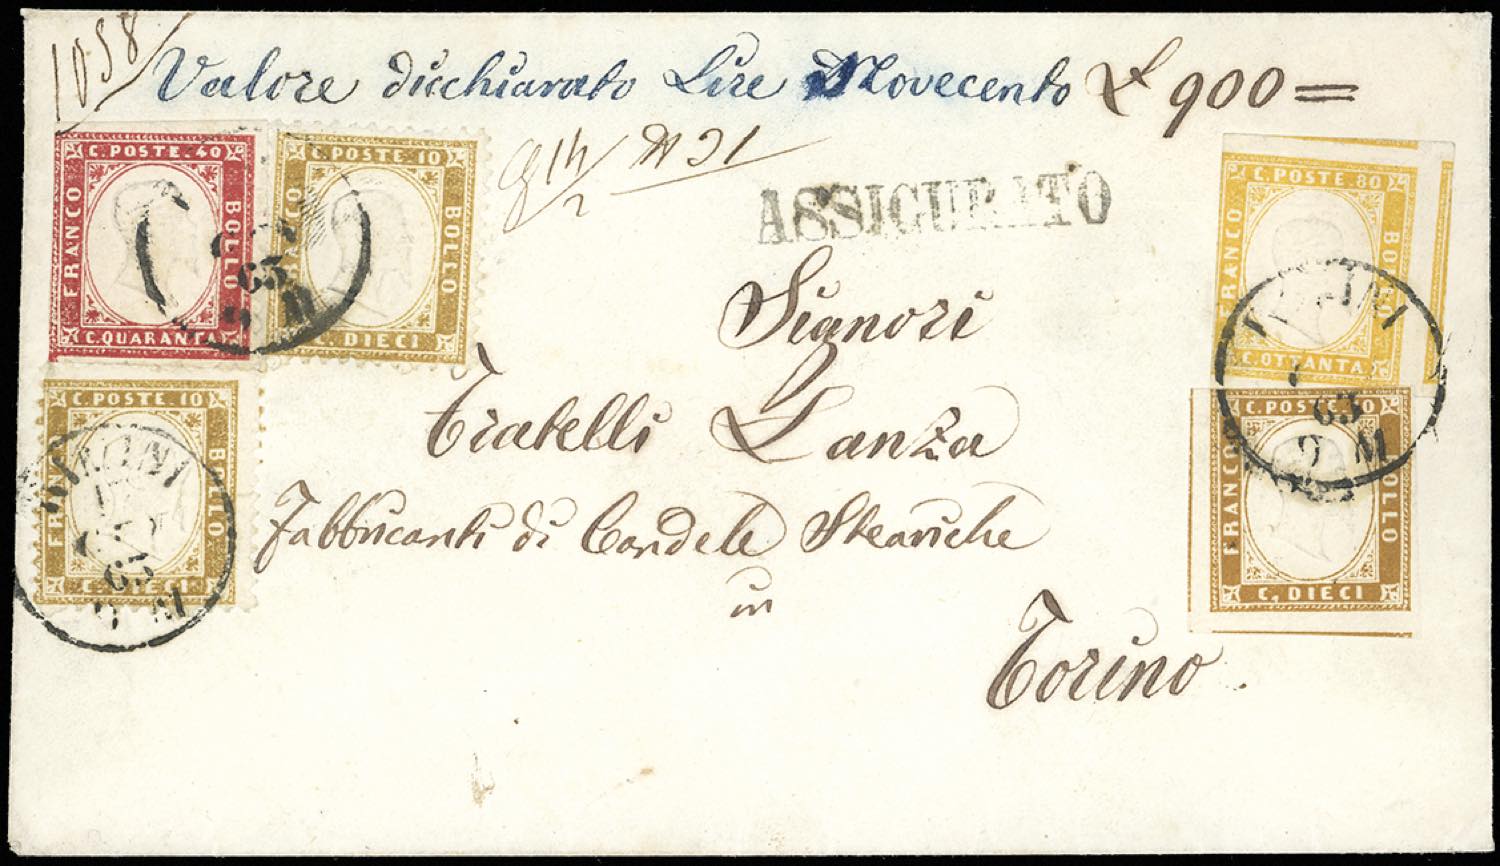 1058
Valore dicchiarato Lire Novecento £ 900 =
ASSICURATO
C. POSTE. 40
FRANCO
BOLLO
C. QUARANTA
C. POSTE. 10
BOLLO
C. DIECI
C. POSTE 80
FRANCO
BOLLO
C. OTTANTA
63
9 M
Signori
Fratelli Lanza
Fabbricanti di Candele Steariche
in
Torino
C. POSTE. 10
FRANCO
BOLLO
C. DIECI
RIMINI
63
9 M
C. POSTE. 10
FRANCO
BOLLO
C. DIECI
RIMINI
63
9 M